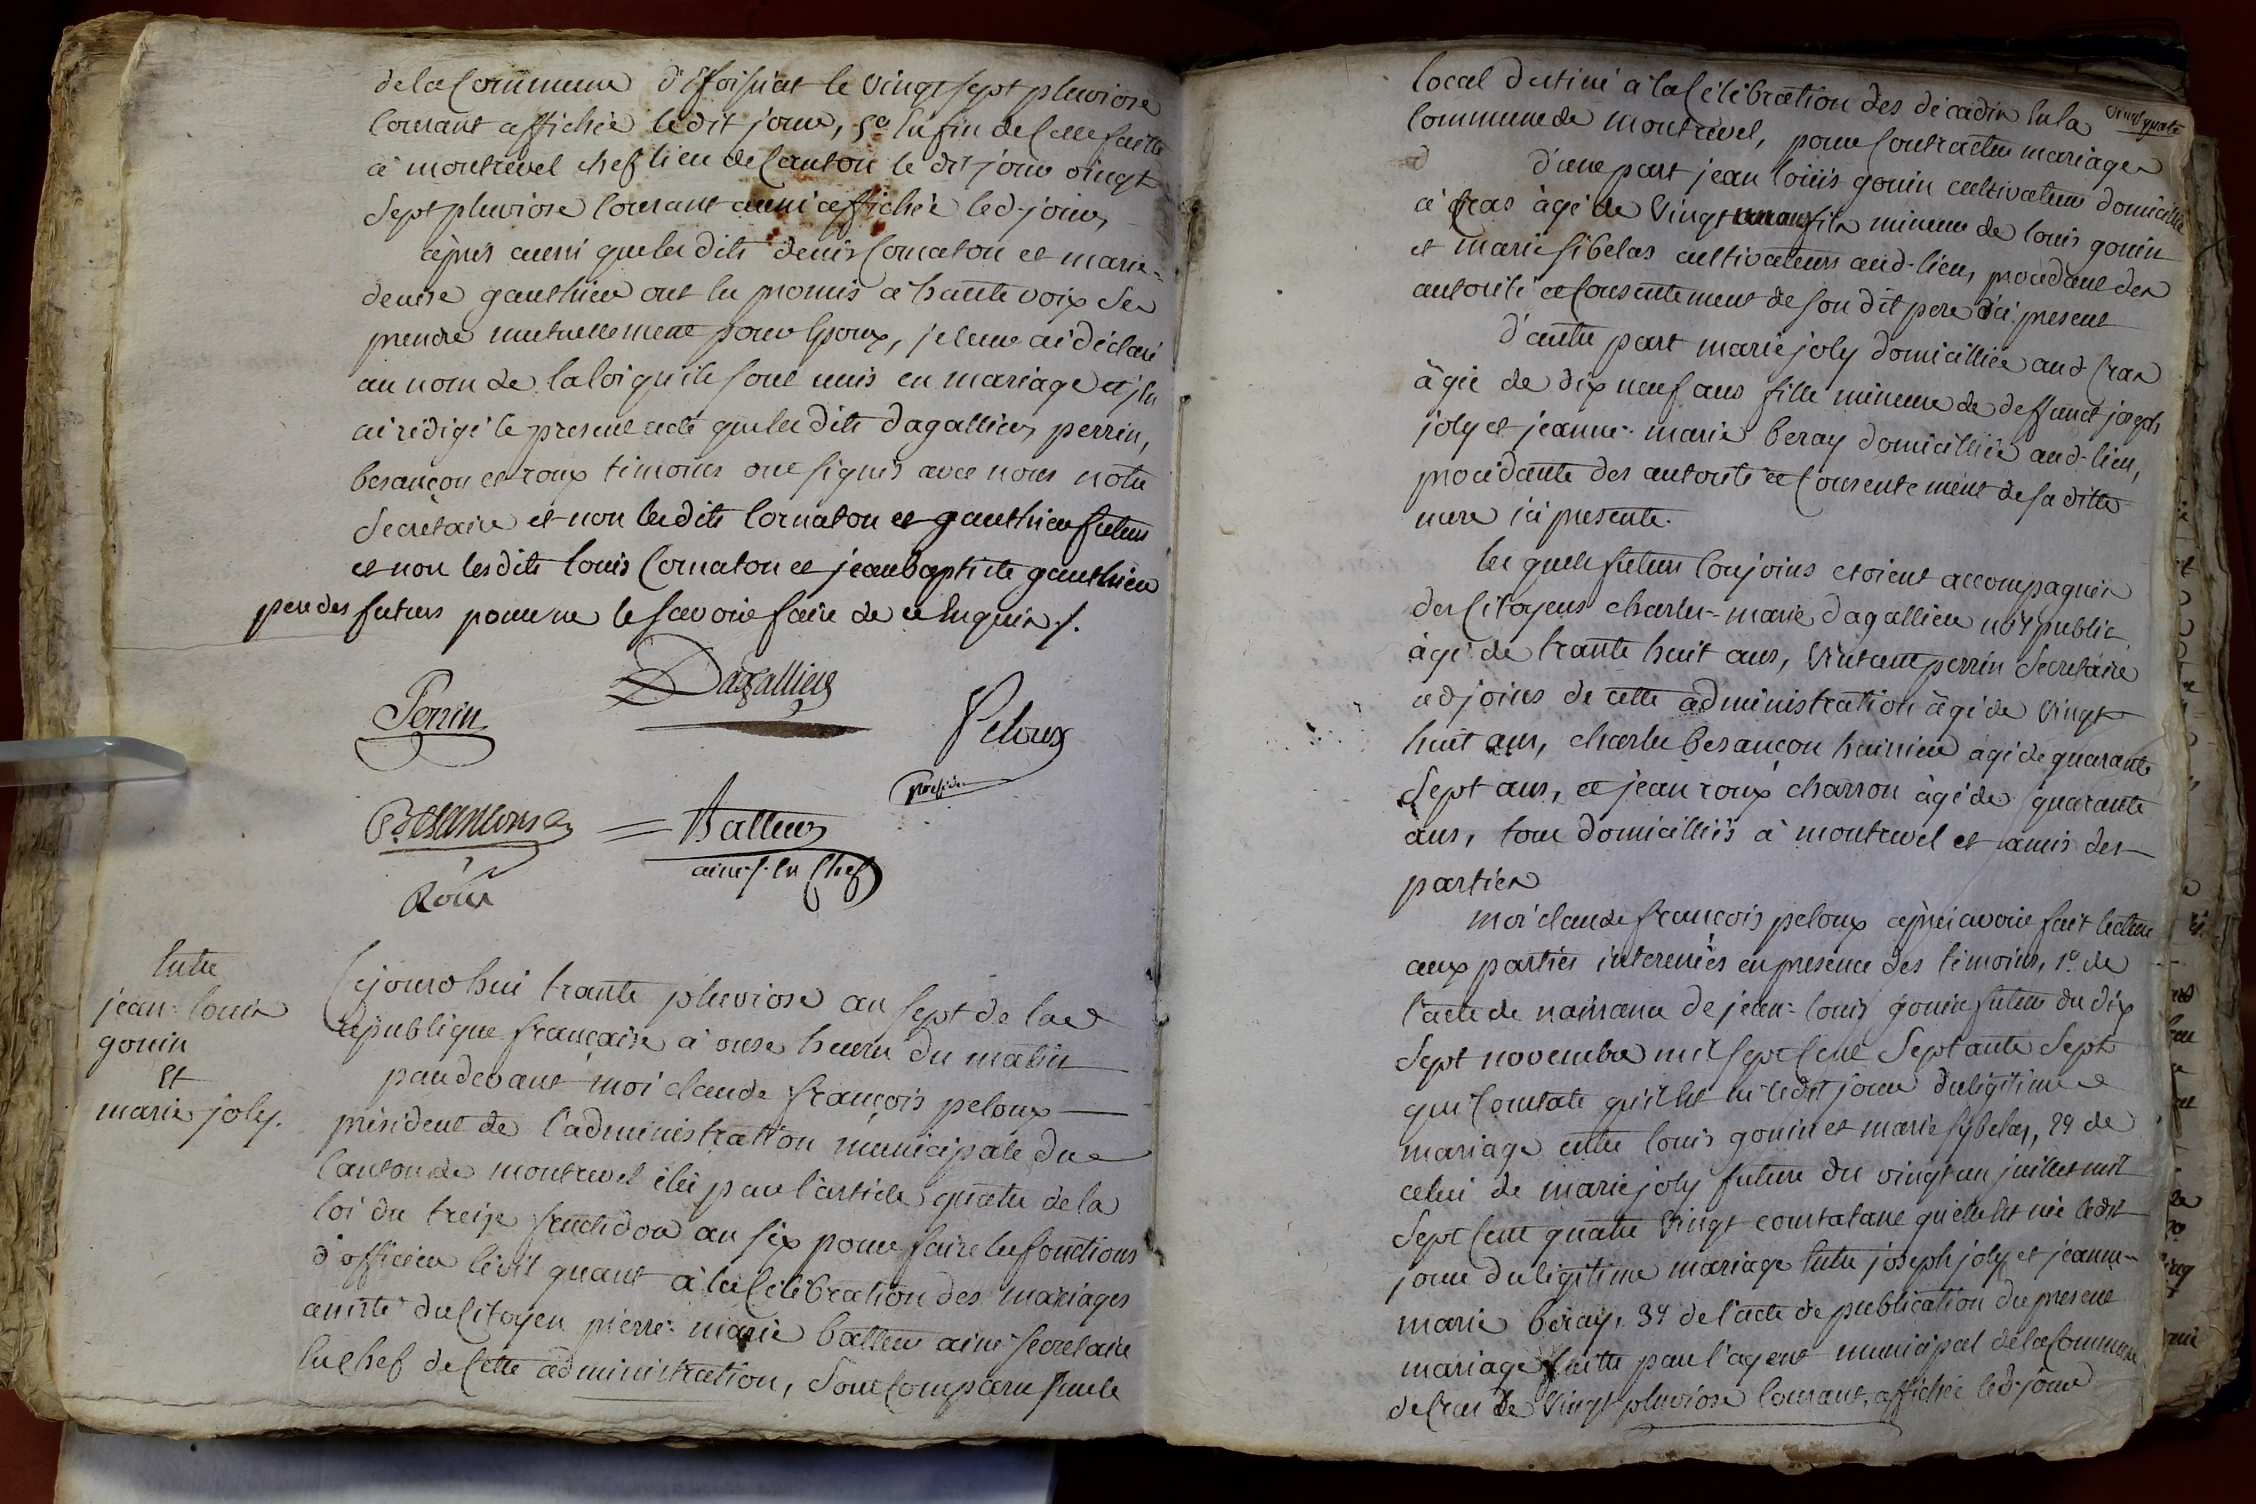 de la Commune d'éfoisiat le vingt sept pluviose
Courant affichée ledit jour, 5° enfin de Celle faitte
à montrevel chef lieu de Canton le dit jour vingt
Sept pluviose Courant aussi affichée led. jour,
après aussi que les dits denis Cornaton et marie-
denise gauthier ont eu promis a haute voix de se
prendre mutuellement pour Epoux, je leur ai déclaré
au nom de la loi qu'ils sont unis en mariage et j'en
ai rédigé le present acte que les dits dagallier, perrin,
besançon et roux témoins ont signés avec nous notre
Secrétaire et non les dits Cornaton et gauthier futurs
et non les dits louis Cornaton et jean baptiste gauthier
peres des futurs pour ne le savoir faire de ce Enquis ./.
Perrin
Dagallier
Peloux
président
Besancons
Batteur
ainé s. en Chef
Roux
Entre
jean-louis
gonin
Et
marie joly.
Cejourd'hui trante pluviose an sept de la
republique française à onse heures du matin
pardevant moi claude françois peloux
président de l'administration municipale du
Canton de montrevel élu par l'article quatre de la
loi du treize fructidor an six pour faire les fonctions
d'officier Civil quant à la Célébration des mariages
assisté du Citoyen pierre-marie batteur ainé secretaire
En Chef de Cette administration, Sont Comparu sur le
vingt quatre
local destiné à la Célébration des décadis En la
Commune de montrevel, pour Contracter mariage
d'une part jean louis gonin cultivateur domicillié
à Cras âgé de vingt un ans fils mineur de louis gonin
et marie sibelas cultivateurs aud. lieu, procédant des
autorité et Consentement de son dit pere ici present
d'autre part marie joly domicilliée aud. Cras
âgée de dix neuf ans fille mineure de deffunct joseph
joly et jeanne-marie beray domicilliée aud. lieu,
procédante des autorité et Consentement de sa ditte
mere ici presente.
les quels futurs Conjoins etoient accompagnés
des Citoyens charles-marie dagallier nore public
âgé de trante huit ans, Vincent perrin Secretaire
adjoins de cette administration âgé de vingt
huit ans, charles besançon huissier âgé de quarante
Sept ans, et jean roux charron âgé de quarante
ans, tous domicilliés à montrevel et amis des
parties
moi claude françois peloux après avoir fait lecture
aux parties interessées en presence des témoins, 1° de
l'acte de naissance de jean-louis gonin futur du dix
Sept novembre mil Sept Cent Septante Sept
qui Constate qu'il Est né ledit jour du légitime
mariage entre louis gonin et marie sybelas, 2° de
celui de marie joly future du vingt un juillet mil
Sept Cent quatre Vingt constatant qu'elle Est née ledit
jour du légitime mariage Entre joseph joly et jeanne-
marie béray, 3° de l'acte de publication du present
mariage faitte par l'agent municipal de la Commune
de Cras le Vingt pluviose Courant, affichée led. jour